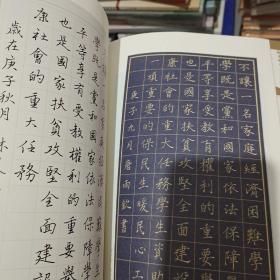 不讓一名家庭經濟困難學
學既是黨和國家依法保障
平等享有受教育權利的重
也是國家扶貧攻堅全面建
康社會的重大任務學生資
一項重要的保民生暖民心工
庚子九月
學既是黨和國家依法保障學
平等享有受教育權利的重要舉
也是國家扶貧攻堅全面建設
康社會的重大任務
歲在庚子秋月